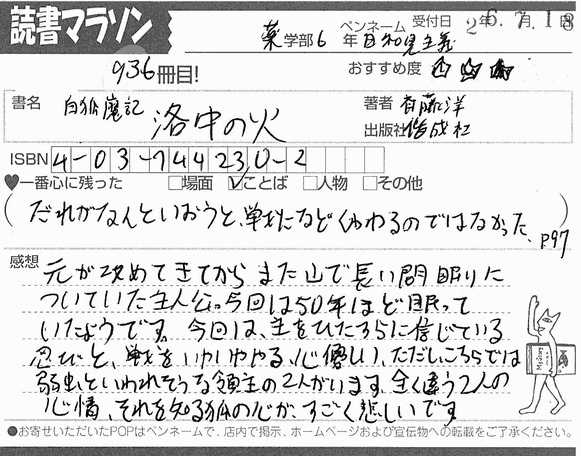 読書マラソン
薬学部6年 ペンネーム 日和見主義 受付日 26.7.18
936冊目! おすすめ度
書名 白狐魔記 洛中の火 著者 斉藤洋
出版社 偕成社
ISBN 4-03-744230-2
♥一番心に残った □場面 ☑ことば □人物 □その他
(だれがなんといおうと、戦になどくわわるのではなかった。P97
感想 元が攻めてきてから また山で長い間 眠りに
ついていた主人公。今回は50年ほど眠って
いたようです。今回は、主をひたすらに信じている
忍びと、戦をいやいややる、心優しい、ただしこちらでは
弱虫といわれそうな領主の2人がいます。全く違う2人の
心情、それを知る狐の心が、すごく悲しいです
●お寄せいただいたPOPはペンネームで、店内で掲示、ホームページおよび宣伝物への転載をご了承ください。